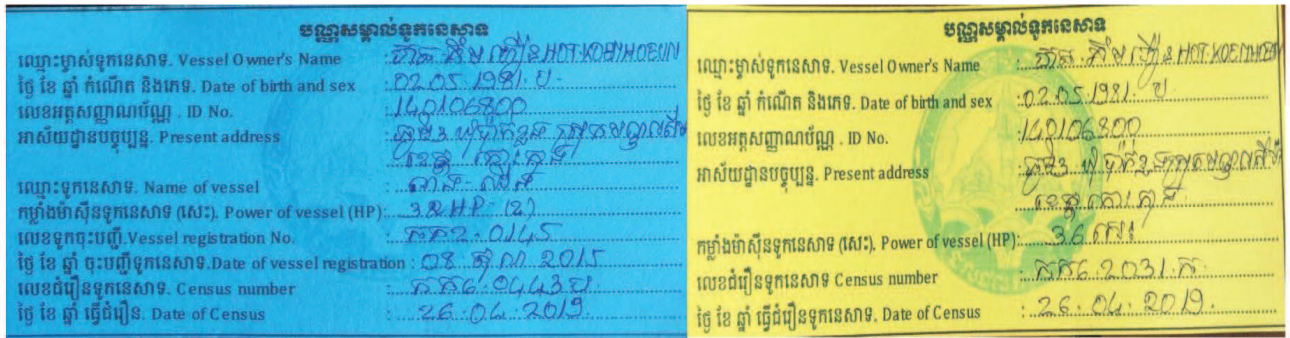 បណ្ណសម្គាល់ទូកនេសាទ
ឈ្មោះម្ចាស់ទូកនេសាទ. Vessel Owner's Name : ហាត គឹម ហឿន HOT KOEMHOEUN
ថ្ងៃ ខែ ឆ្នាំ កំណើត និងភេទ. Date of birth and sex : 02.05.1981. ប
លេខអត្តសញ្ញាណប័ណ្ណ . ID No. : 140106800
អាស័យដ្ឋានបច្ចុប្បន្ន. Present address
ខេត្ត កោះកុង
ឈ្មោះទូកនេសាទ. Name of vessel
កម្លាំងម៉ាស៊ីនទូកនេសាទ (សេះ). Power of vessel (HP) : HP (2)
លេខទូកចុះបញ្ជី.Vessel registration No. : កក2.0145
ថ្ងៃ ខែ ឆ្នាំ ចុះបញ្ជីទូកនេសាទ.Date of vessel registration : 08 តុលា 2015
លេខជំរឿនទូកនេសាទ. Census number : កក6.0443.ប
ថ្ងៃ ខែ ឆ្នាំ ធ្វើជំរឿន. Date of Census : 26.04.2019.
បណ្ណសម្គាល់ទូកនេសាទ
ឈ្មោះម្ចាស់ទូកនេសាទ. Vessel Owner's Name : ហាត គឹម ហឿន HOT KOEMHOEUN
ថ្ងៃ ខែ ឆ្នាំ កំណើត និងភេទ. Date of birth and sex : 02.05.1981. ប
លេខអត្តសញ្ញាណប័ណ្ណ . ID No. : 140106800
អាស័យដ្ឋានបច្ចុប្បន្ន. Present address
ខេត្ត កោះកុង
កម្លាំងម៉ាស៊ីនទូកនេសាទ (សេះ). Power of vessel (HP): 36 សេះ
លេខជំរឿនទូកនេសាទ Census number : កក6.2031.ក
ថ្ងៃ ខែ ឆ្នាំ ធ្វើជំរឿនទូកនេសាទ. Date of Census : 26.04.2019.